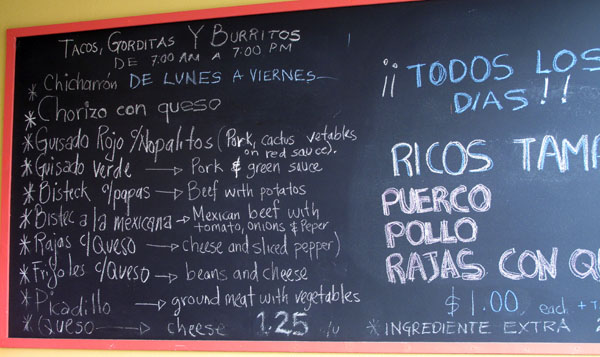 TACOS, GORDITAS Y BURRITOS
DE 7:00 AM A 7:00 PM
* Chicharrón DE LUNES A VIERNES
* Chorizo con queso
* Guisado Rojo c/Nopalitos (Pork, cactus vetables
on red sauce).
* Guisado verde → Pork & green sauce
* Bisteck c/papas → Beef with potatos
* Bistec a la mexicana → Mexican beef with
tomato, onions & Peper
* Rajas c/Queso → cheese and sliced pepper)
* Frijoles c/Queso → beans and cheese
* Picadillo → ground meat with vegetables
* Queso → cheese 1.25 c/u
¡¡TODOS LOS
DIAS!!
RICOS TAMA
PUERCO
POLLO
RAJAS CON QU
$1.00 each + T
* INGREDIENTE EXTRA